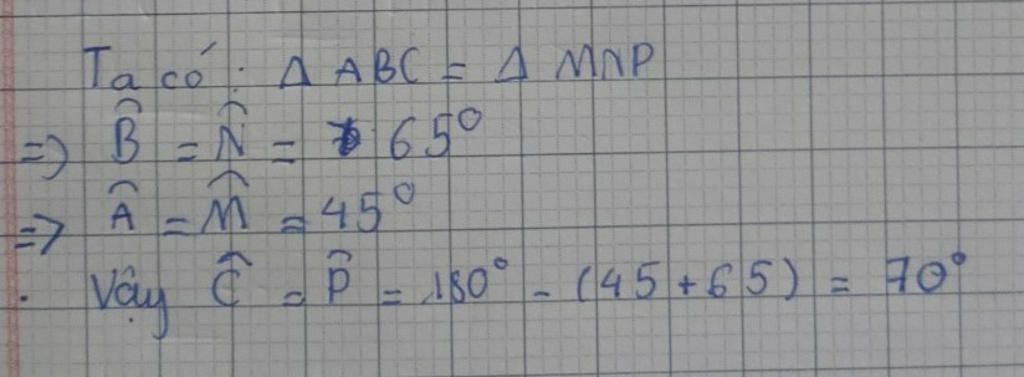 Ta có: Δ ABC = Δ MNP
=> B̂ = N̂ = 65°
=> Â = M̂ = 45°
. Vậy Ĉ = P̂ = 180° - (45 + 65) = 70°